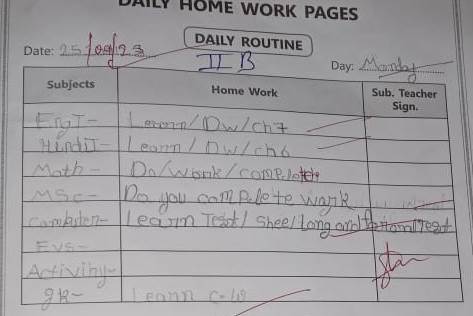 DAILY HOME WORK PAGES
DAILY ROUTINE
Date: 25/09/23 II B Day: Monday
Subjects Home Work Sub. Teacher Sign.
EngI- Learn/Dw/Ch7
HindiI- Learn/Dw/ch6
Math- Do/Work/complete
MSC- Do you complete work
Computer- Learn Test/ Shee/Long and
Evs-
Activihy-
gk- Leann C-18